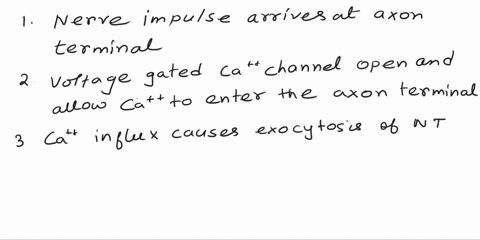 1. Nerve impulse arrives at axon
terminal
2. Voltage gated Ca++ channel open and
allow Ca++ to enter the axon terminal
3 Ca++ influx causes exocytosis of NT